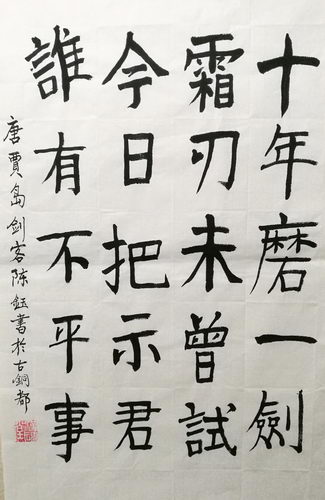 十年磨一劍
霜刃未曾試
今日把示君
誰有不平事
唐賈島劍客陈鈺書於古銅都